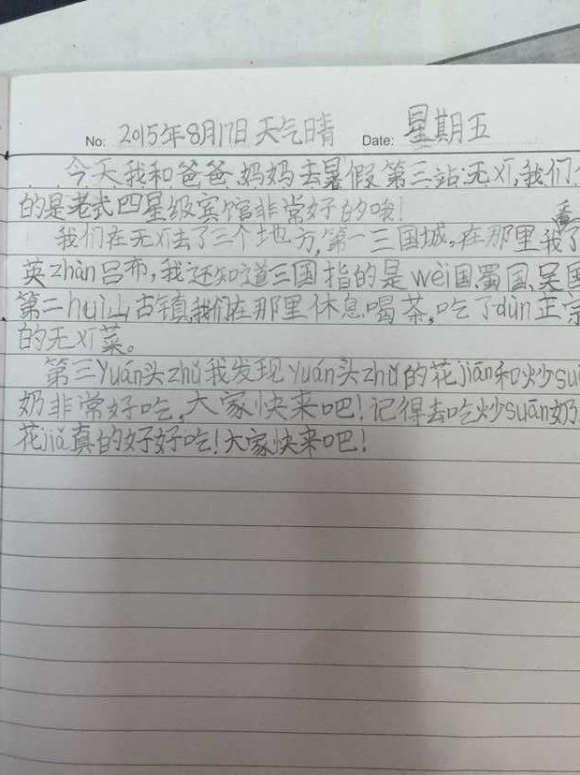 No: 2015年8月17日天气晴 Date: 星期五
今天我和爸爸、妈妈去暑假第三站:无xī,我们
的是老式四星级宾馆非常好的哦!
我们在无xī去了三个地方,第一三国城,在那里我
英zhàn吕布,我还知道三国指的是wèi国、蜀国、吴国
第二huì山古镇,我们在那里休息喝茶,吃了dùn正宗
的无xī菜。
第三yuán头zhǔ我发现yuán头zhǔ的花jiān和炒suān
奶非常好吃,大家快来吧!记得去吃炒suān奶
花jiā真的好好吃!大家快来吧!